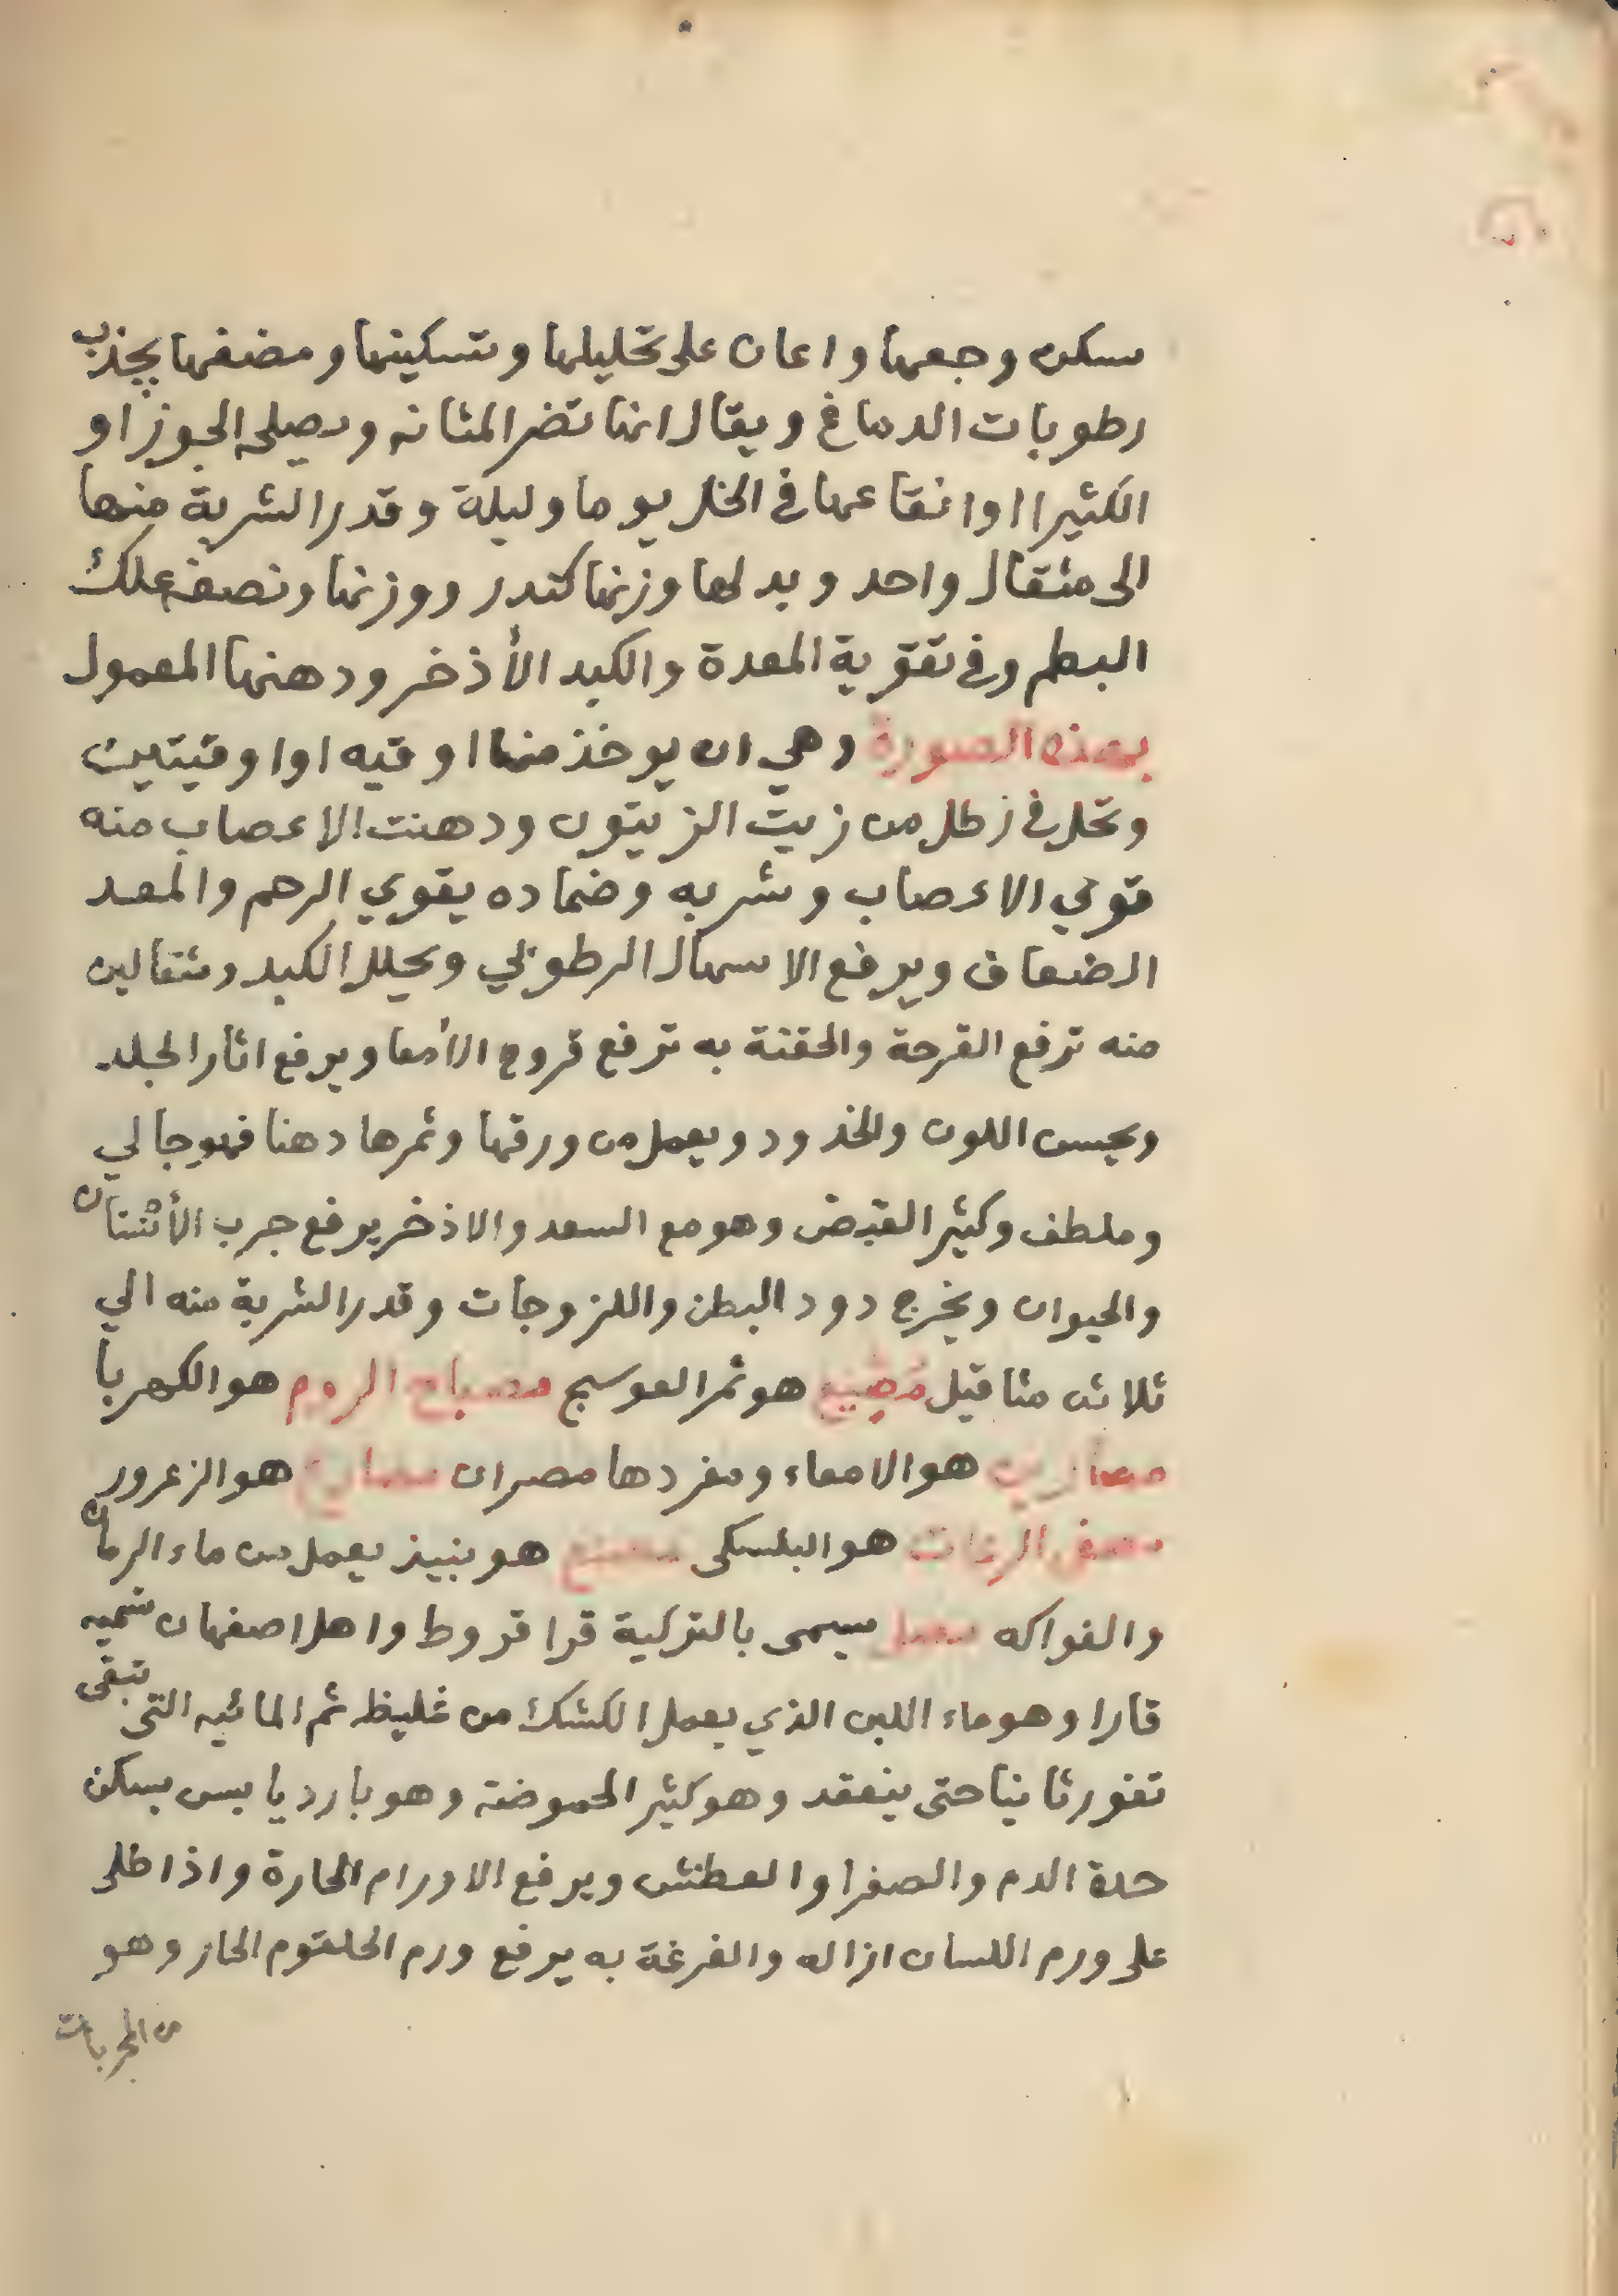 سكن وجعها واعان على تحليلها وتسكينها ومضغها يجذب
رطوبات الدماغ ويقال انها تضر المثانه ويصلحه الجوز او
الكثيرا او انقاعها في الخل يوما وليلة وقدر الشربة منها
الى مثقال واحد وبدلها وزنها كندر ووزنها ونصف علك
البطم وفي تقوية المعدة والكبد الأذخر ودهنها المعمول
بهذه الصورة وهي ان يوخذ منها اوقيه او اوقيتين
وتحل في رطل من زيت الزيتون ودهنت الاعصاب منه
قوي الاعصاب وشربه وضماده يقوي الرحم والمعد
الضعاف ويرفع الاسهال الرطوبي ويحلل الكبد ومثقالين
منه ترفع القرحة والحقنة به ترفع قروح الأمعا ويرفع اثار الجلد
ويحسن اللون والخدود ويعمل من ورقها وثمرها دهنا فهو جالي
وملطف وكثير القبض وهو مع السعد والاذخر يرفع جرب الأنسان
والحيوان ويخرج دود البطن واللزوجات وقدر الشربة منه الي
ثلاث مثاقيل مُصَيع هو ثمر العوسج مصباح الروم هو الكهربا
مصارين هو الامعاء ومفردها مصران هو الزعرور
مصفى الرعات هو البلسكى هو نبيذ يعمل من ماء الرمان
والفواكه مصل يسمى بالتركية قرا قروط واهل اصفهان تسميه
قارا وهو ماء اللبن الذي يعمل الكشك من غليظه ثم المائيه التى تبقى
تفور ثانيا حتى ينعقد وهو كثير الحموضة وهو بارد يابس يسكن
حدة الدم والصفرا والعطش ويرفع الاورام الحارة واذا طلى
على ورم اللسان ازاله والغرغة به يرفع ورم الحلقوم الحار وهو
من المجربات